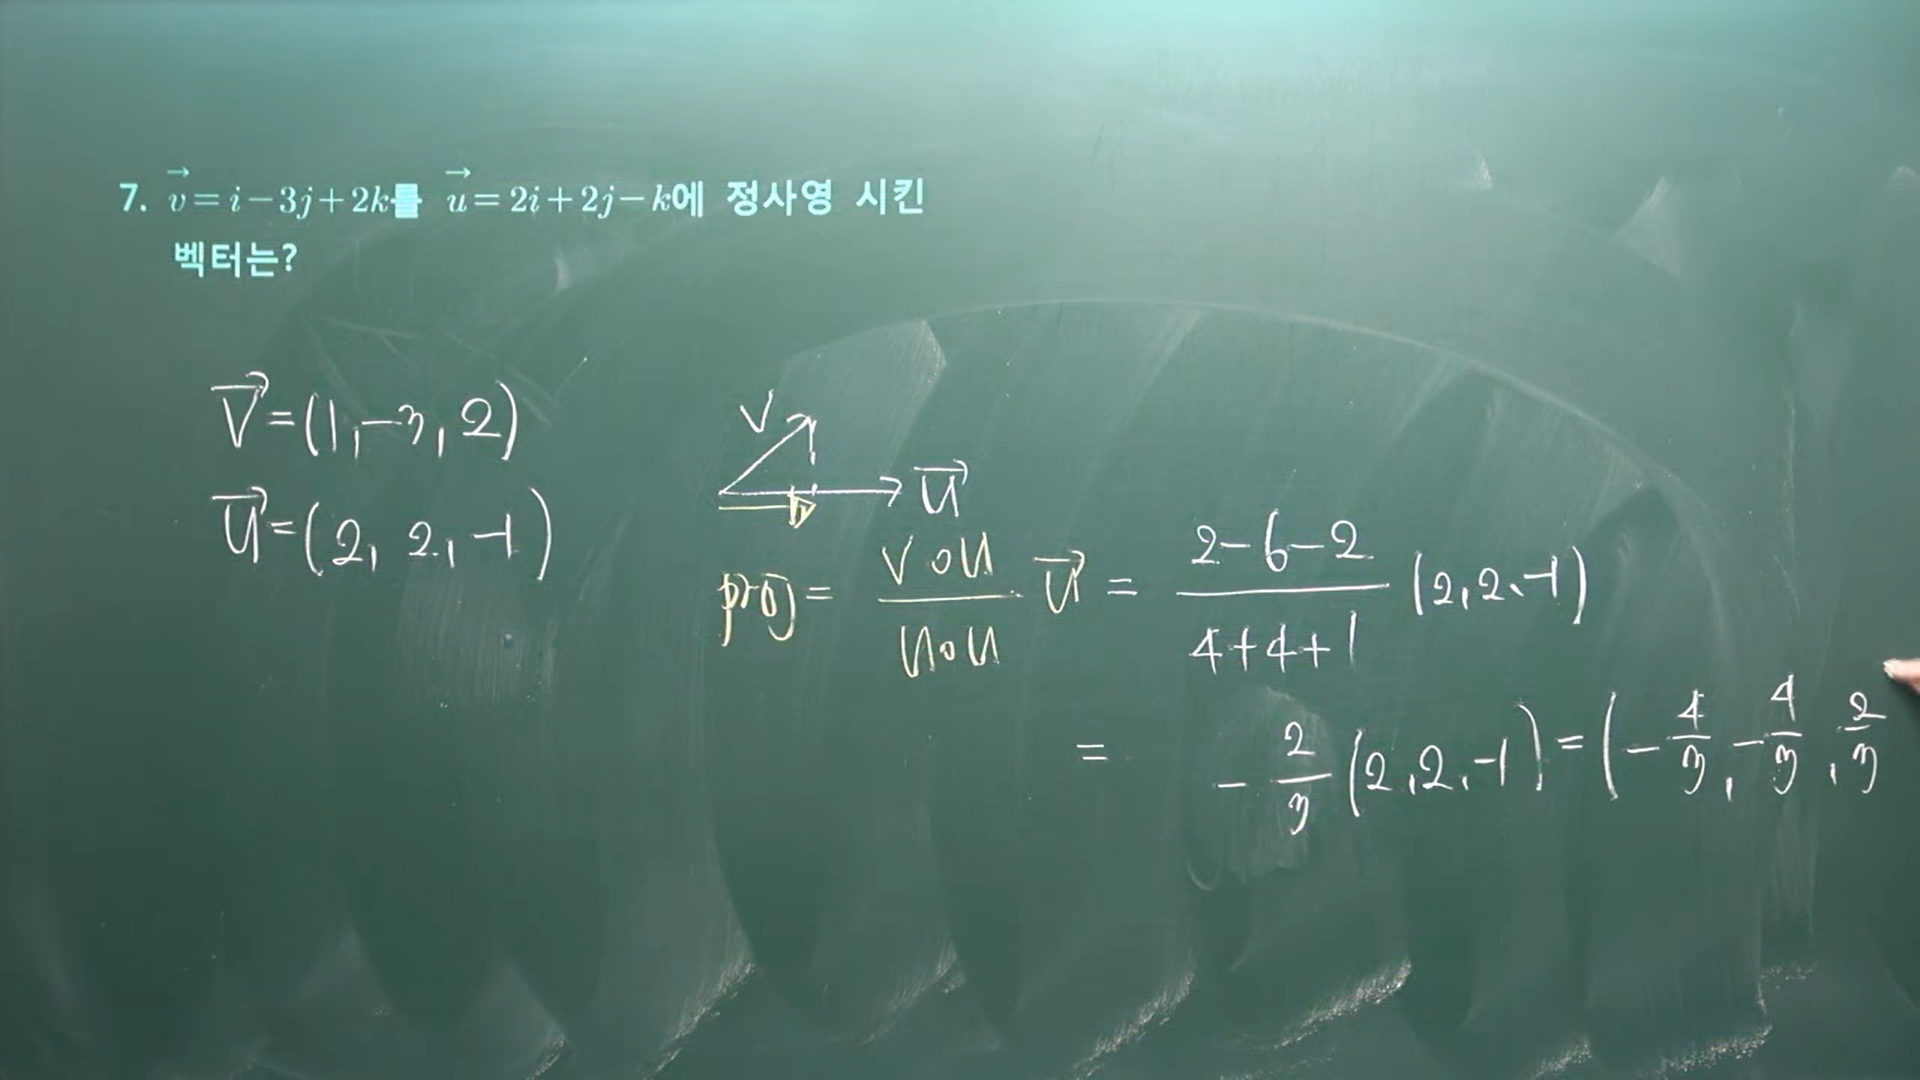 7. v⃗ = i − 3j + 2k를 u⃗ = 2i + 2j − k에 정사영 시킨
벡터는?
V⃗ = (1, −3, 2)
U⃗ = (2, 2, −1)
V
U⃗
proj = V∘U / U∘U U⃗ = 2−6−2 / 4+4+1 (2, 2, −1)
= −2/3 (2, 2, −1) = (−4/3, −4/3, 2/3